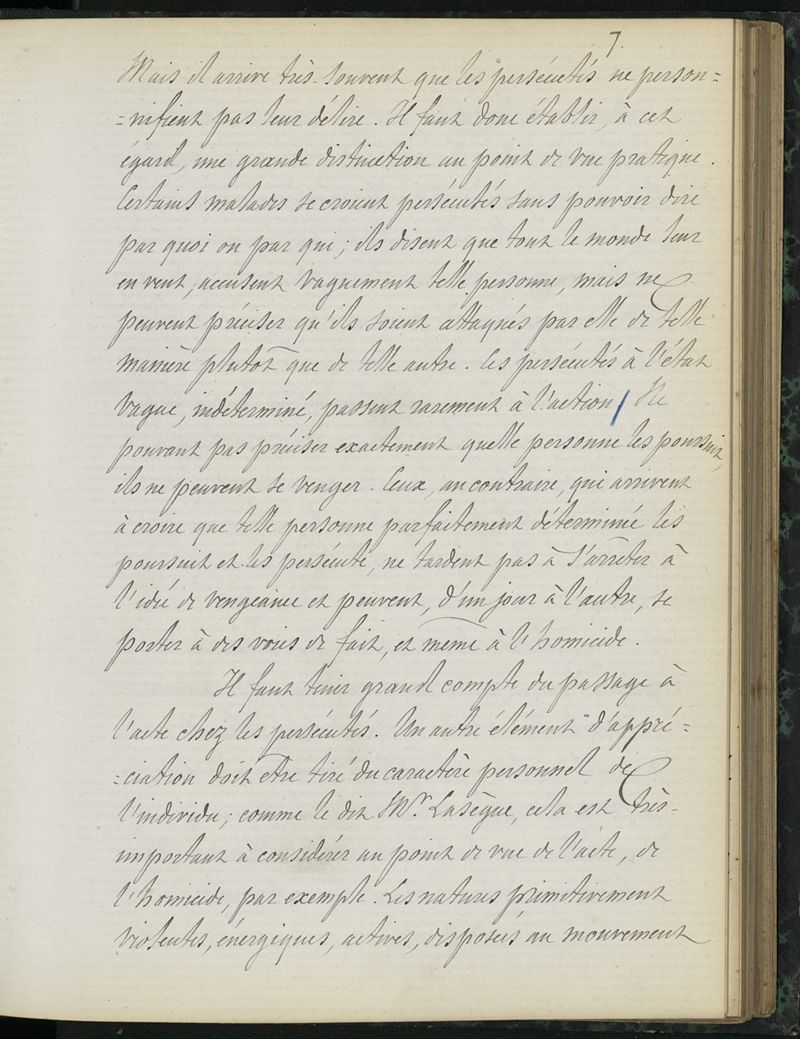 7.
Mais il arrive très-souvent que les persécutés ne person=
=nifient pas leur délire. Il faut donc établir, à cet
égard, une grande distinction au point de vue pratique.
Certains malades se croient persécutés sans pouvoir dire
par quoi ou par qui; ils disent que tout le monde leur
en veut, accusent vaguement telle personne, mais ne
peuvent préciser qu'ils soient attaqués par elle de telle
manière plutôt que de telle autre. Ces persécutés à l'état
vague, indéterminé, passent rarement à l'action / Ne
pouvant pas préciser exactement quelle personne les poursuit,
ils ne peuvent se venger. Ceux, au contraire, qui arrivent
à croire que telle personne parfaitement déterminée les
poursuit et les persécute, ne tardent pas à s'arrêter à
l'idée de vengeance et peuvent, d'un jour à l'autre, se
porter à des voies de fait, et même à l'homicide.
Il faut tenir grand compte du passage à
l'acte chez les persécutés. Un autre élément d'appré=
=ciation doit être tiré du caractère personnel de
l'individu; comme le dit Mr. Lasègue, cela est très-
important à considérer au point de vue de l'acte, de
l'homicide, par exemple. Les natures primitivement
violentes, énergiques, actives, disposées au mouvement